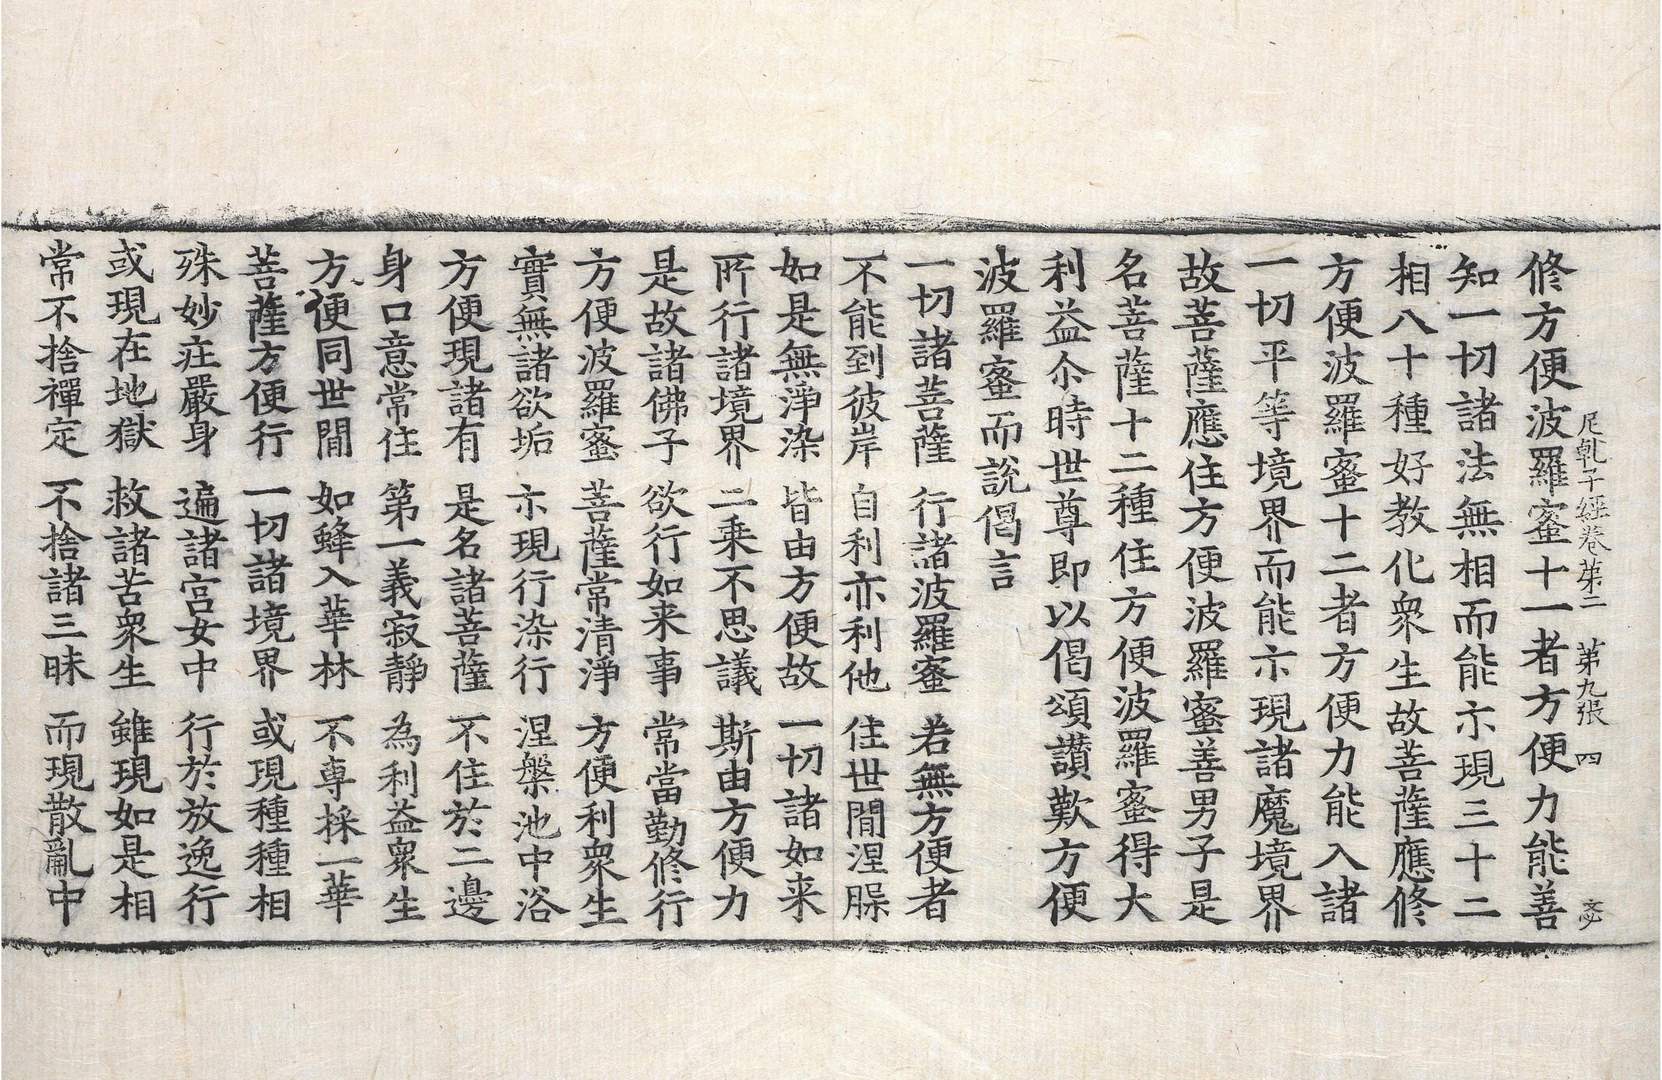 尼乹子經卷第二　第九張　四
修方便波羅蜜十一者方便力能善
知一切諸法無相而能示現三十二
相八十種好教化衆生故菩薩應修
方便波羅蜜十二者方便力能入諸
一切平等境界而能示現諸魔境界
故菩薩應住方便波羅蜜善男子是
名菩薩十二種住方便波羅蜜得大
利益尒時世尊即以偈頌讃歎方便
波羅蜜而說偈言
一切諸菩薩　行諸波羅蜜　若無方便者
不能到彼岸　自利亦利他　住世間涅槃
如是無淨染　皆由方便故　一切諸如来
所行諸境界　二乘不思議　斯由方便力
是故諸佛子　欲行如来事　常當勤修行
方便波羅蜜　菩薩常清淨　方便利衆生
實無諸欲垢　示現行染行　涅槃池中浴
方便現諸有　是名諸菩薩　不住於二邊
身口意常住　第一義寂靜　為利益衆生
方便同世間　如蜂入華林　不専採一華
菩薩方便行　一切諸境界　或現種種相
殊妙庄嚴身　遍諸宮女中　行於放逸行
或現在地獄　救諸苦衆生　雖現如是相
常不捨禪定　不捨諸三昧　而現散亂中